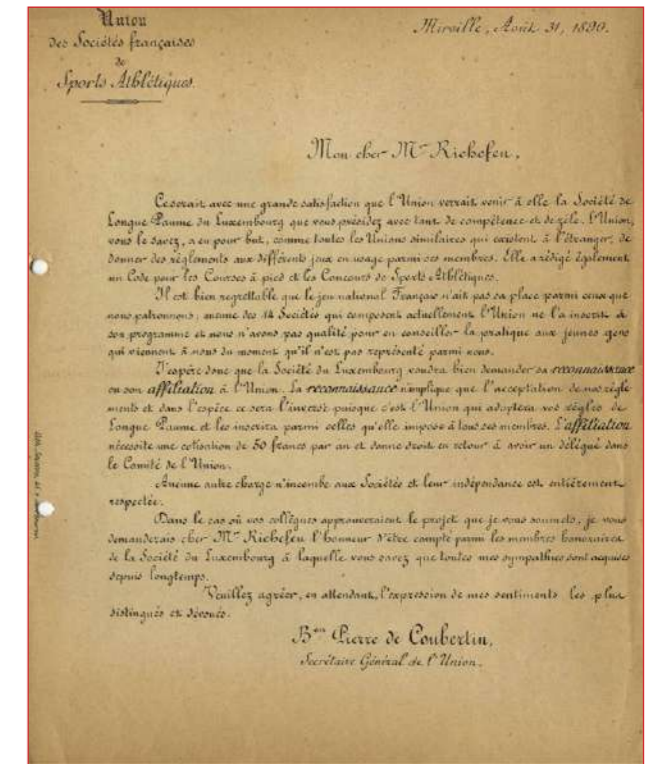 Union
des Sociétés françaises
de
Sports Athlétiques.
Mirville, Août 31, 1890.
Mon cher Mr Richefeu,
Ce serait avec une grande satisfaction que l'Union verrait venir à elle la Société de
Longue Paume du Luxembourg que vous présidez avec tant de compétence et de zèle. l'Union,
vous le savez, a eu pour but, comme toutes les Unions similaires qui existent à l'étranger, de
donner des règlements aux différents jeux en usage parmi ses membres. Elle a rédigé également
un Code pour les Courses à pied et les Concours de Sports Athlétiques.
Il est bien regrettable que le jeu national Français n'ait pas sa place parmi ceux que
nous patronnons; aucune des 14 Sociétés qui composent actuellement l'Union ne l'a inscrit à
son programme et nous n'avons pas qualité pour en conseiller la pratique aux jeunes gens
qui viennent à nous du moment qu'il n'est pas représenté parmi nous.
J'espère donc que la Société du Luxembourg voudra bien demander sa reconnaissance
ou son affiliation à l'Union. La reconnaissance n'implique que l'acceptation de nos règle
ments et dans l'espèce ce sera l'inverse puisque c'est l'Union qui adoptera vos règles de
Longue Paume et les inscrira parmi celles qu'elle impose à tous ses membres. L'affiliation
nécessite une cotisation de 50 francs par an et donne droit en retour à avoir un délégué dans
le Comité de l'Union.
Aucune autre charge n'incombe aux Sociétés et leur indépendance est entièrement
respectée.
Dans le cas où vos collègues approuveraient le projet que je vous soumets, je vous
demanderais cher Mr Richefeu l'honneur d'être compté parmi les membres honoraires
de la Société du Luxembourg à laquelle vous savez que toutes mes sympathies sont acquises
depuis longtemps.
Veuillez agréer, en attendant, l'expression de mes sentiments les plus
distingués et dévoués.
Bon Pierre de Coubertin,
Secrétaire Général de l'Union.